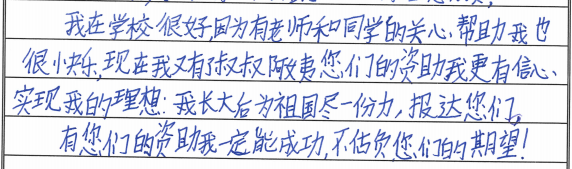 我在学校很好,因为有老师和同学的关心、帮助我也
很小快乐,现在我又有了叔叔阿姨您们的资助我更有信心、
实现我的理想:我长大后为祖国尽一份力,报达您们,
有您们的资助我一定能成功,不估负您们的期望!